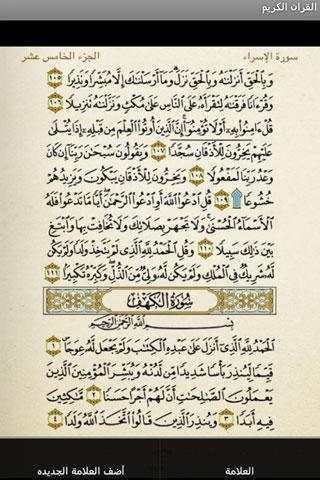 القرآن الكريم
سورة الإسراء
الجزء الخامس عشر
وَبِٱلْحَقِّ أَنزَلْنَٰهُ وَبِٱلْحَقِّ نَزَلَ وَمَآ أَرْسَلْنَٰكَ إِلَّا مُبَشِّرًا وَنَذِيرًا ١٠٥
وَقُرْءَانًا فَرَقْنَٰهُ لِتَقْرَأَهُۥ عَلَى ٱلنَّاسِ عَلَىٰ مُكْثٍ وَنَزَّلْنَٰهُ تَنزِيلًا ١٠٦
قُلْ ءَامِنُوا۟ بِهِۦٓ أَوْ لَا تُؤْمِنُوٓا۟ إِنَّ ٱلَّذِينَ أُوتُوا۟ ٱلْعِلْمَ مِن قَبْلِهِۦٓ إِذَا يُتْلَىٰ
عَلَيْهِمْ يَخِرُّونَ لِلْأَذْقَانِ سُجَّدًا ١٠٧ وَيَقُولُونَ سُبْحَٰنَ رَبِّنَآ إِن كَانَ
وَعْدُ رَبِّنَا لَمَفْعُولًا ١٠٨ وَيَخِرُّونَ لِلْأَذْقَانِ يَبْكُونَ وَيَزِيدُهُمْ
خُشُوعًا ١٠٩ قُلِ ٱدْعُوا۟ ٱللَّهَ أَوِ ٱدْعُوا۟ ٱلرَّحْمَٰنَ أَيًّا مَّا تَدْعُوا۟ فَلَهُ
ٱلْأَسْمَآءُ ٱلْحُسْنَىٰ وَلَا تَجْهَرْ بِصَلَاتِكَ وَلَا تُخَافِتْ بِهَا وَٱبْتَغِ
بَيْنَ ذَٰلِكَ سَبِيلًا ١١٠ وَقُلِ ٱلْحَمْدُ لِلَّهِ ٱلَّذِى لَمْ يَتَّخِذْ وَلَدًا وَلَمْ يَكُن
لَّهُۥ شَرِيكٌ فِى ٱلْمُلْكِ وَلَمْ يَكُن لَّهُۥ وَلِىٌّ مِّنَ ٱلذُّلِّ وَكَبِّرْهُ تَكْبِيرًۢا ١١١
سُورَةُ الكَهْفِ
بِسْمِ ٱللَّهِ ٱلرَّحْمَٰنِ ٱلرَّحِيمِ
ٱلْحَمْدُ لِلَّهِ ٱلَّذِىٓ أَنزَلَ عَلَىٰ عَبْدِهِ ٱلْكِتَٰبَ وَلَمْ يَجْعَل لَّهُۥ عِوَجَا ١
قَيِّمًا لِّيُنذِرَ بَأْسًا شَدِيدًا مِّن لَّدُنْهُ وَيُبَشِّرَ ٱلْمُؤْمِنِينَ ٱلَّذِينَ
يَعْمَلُونَ ٱلصَّٰلِحَٰتِ أَنَّ لَهُمْ أَجْرًا حَسَنًا ٢ مَّٰكِثِينَ
فِيهِ أَبَدًا ٣ وَيُنذِرَ ٱلَّذِينَ قَالُوا۟ ٱتَّخَذَ ٱللَّهُ وَلَدًا ٤
العلامة
أضف العلامة الجديده